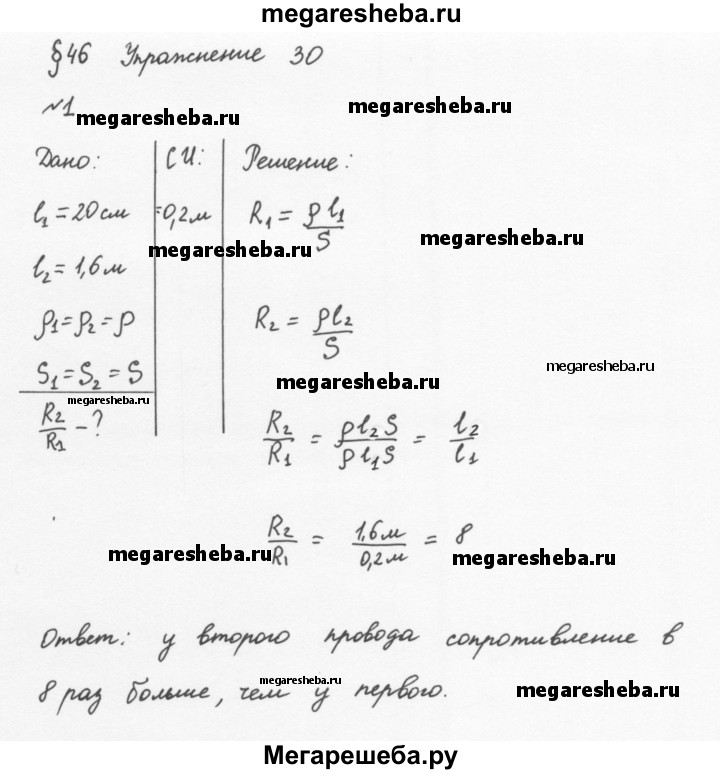 megaresheba.ru
§46 Упражнение 30
№1 megaresheba.ru megaresheba.ru
Дано: СИ: Решение:
l₁ = 20 см =0,2 м R₁ = ρl₁/S
megaresheba.ru megaresheba.ru
l₂ = 1,6 м
ρ₁ = ρ₂ = ρ R₂ = ρl₂/S
S₁ = S₂ = S megaresheba.ru megaresheba.ru
megaresheba.ru
R₂/R₁ - ? R₂/R₁ = ρl₂S/ρl₁S = l₂/l₁
R₂/R₁ = 1,6 м/0,2 м = 8
megaresheba.ru megaresheba.ru
Ответ: у второго провода сопротивление в
8 раз больше, чем у первого.
megaresheba.ru megaresheba.ru
Мегарешеба.ру